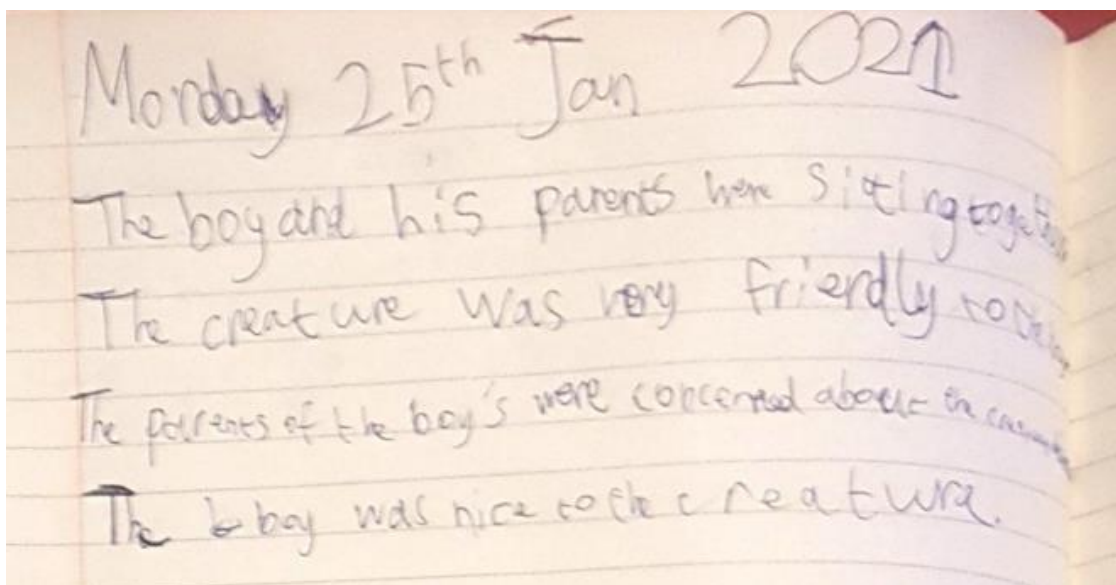 Monday 25th Jan 2021
The boy and his parents were sitting together
The creature was very friendly to the
The parents of the boy's were concerned about the creature
The boy was nice to the creature.